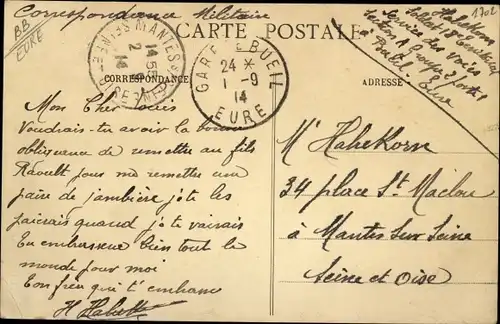 Correspondance Militaire
BB
EURE
CARTE POSTALE
CORRESPONDANCE
ADRESSE
MANTES S SEINE
14 55
2 - 9
14
GARE DE BUEIL
24 *
1 - 9
14
EURE
Habekorn
Soldat 18e
Service des voies
Section A Groupe 2 poste 1
à Bueil
Eure
Mon Cher Louis
Voudrais-tu avoir la bonne
obligeance de remettre au fils
Raoult pour me remettre une
paire de jambière je te les
paierais quand je te vairais
Tu embrassera bien tout le
monde pour moi
Ton frère qui t'embrasse
H Habek
Mr Habekorn
34 place St Maclou
à Mantes sur Seine
Seine et Oise